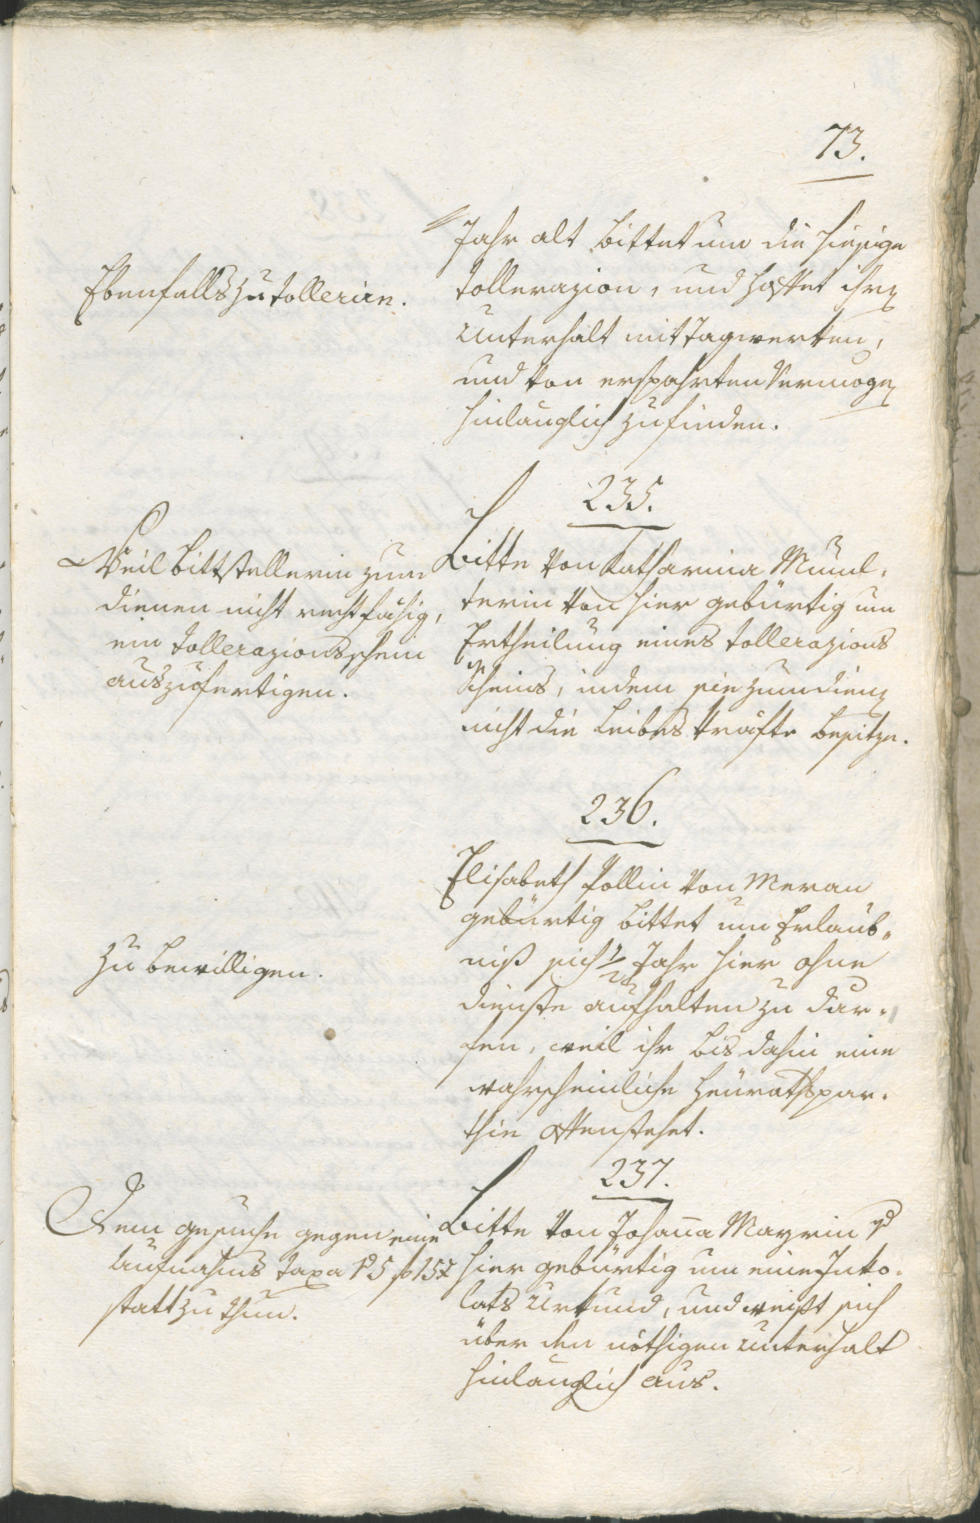 73.
Jahr alt bittet um die hiesige
tollerazion, und hoffet ihrn
Unterhalt mit Tagwerken,
und von ersparten Vermogn
hinlänglich zu finden.
Ebenfalls zu tollerirn.
235.
Bitte von Katharina Münl,
terin von hier gebürtig um
Ertheilung eines tollerazions
scheins, indem sie zum dienn
nicht die Leibes Kräfte besitze.
Weil Bittstellerin zum
dienen nicht recht fähig,
ein tollerazionsschein
auszufertigen.
236.
Elisabeth Pollin von Meran
gebürtig bittet um Erlaub„
niß sich 1/2 Jahr hier ohne
dienste aufhalten zu dür„
fen, weil ihr bis dahin eine
wahrscheinliche Heürathspar„
thie offenstehet.
Zu bewilligen.
237.
Bitte von Johanna Mayrin v
hier gebürtig um eine Inko„
lats Urkund, und weißt sich
über den nöthigen Unterhalt
hinlänglich aus.
Dem gesuche gegen eine
Aufnahms taxa 5 f 15 x
statt zu thun.